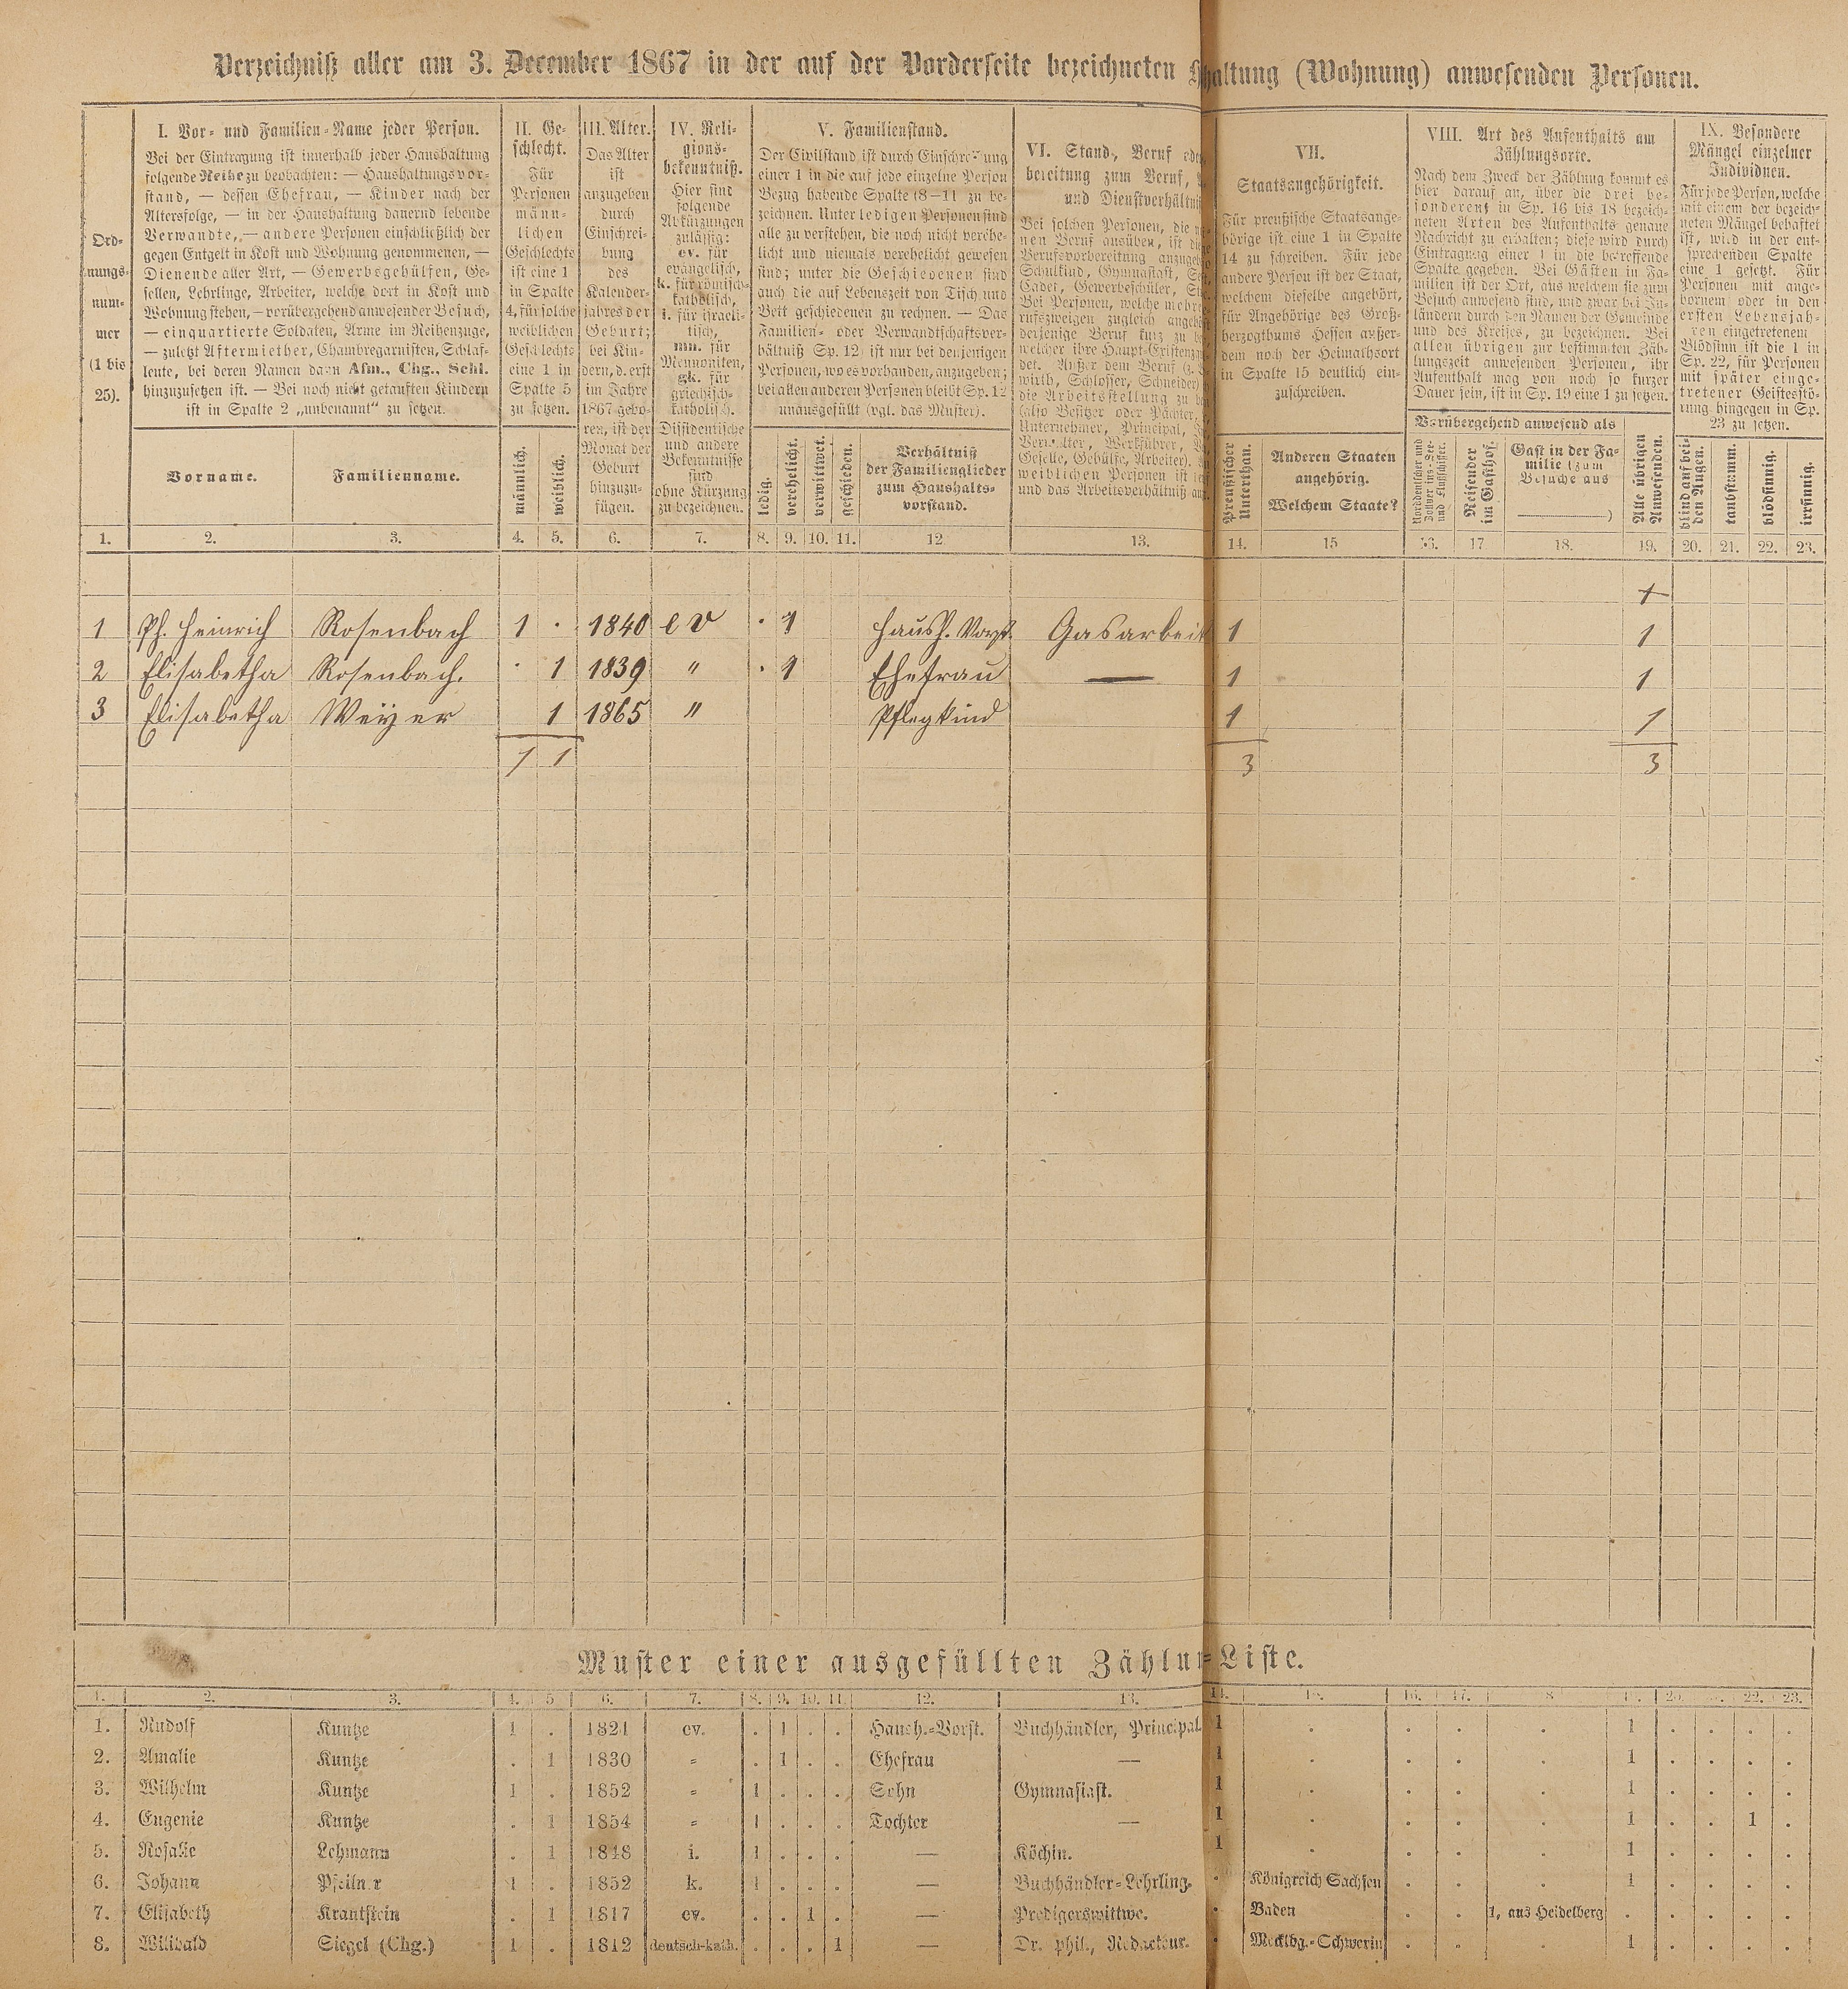 Verzeichniß aller am 3. December 1867 in der auf der Vorderseite bezeichneten haltung (Wohnung) anwesenden Personen.
Ord-
nungs-
num-
mer
(1 bis
25).
I. Vor- und Familien-Name jeder Person.
Bei der Eintragung ist innerhalb jeder Haushaltung
folgende Reihe zu beobachten: — Haushaltungsvor-
stand, — dessen Ehefrau, — Kinder nach der
Altersfolge, — in der Haushaltung dauernd lebende
Verwandte, — andere Personen einschließlich der
gegen Entgelt in Kost und Wohnung genommenen, —
Dienende aller Art, — Gewerbsgehülfen, Ge-
sellen, Lehrlinge, Arbeiter, welche dort in Kost und
Wohnung stehen, — vorübergehend anwesender Besuch,
— einquartierte Soldaten, Arme im Reihenzuge,
— zuletzt Aftermiether, Chambregarnisten, Schlaf-
leute, bei deren Namen dann Afm., Chg., Schl.
hinzuzusetzen ist. — Bei noch nicht getauften Kindern
ist in Spalte 2 „unbenannt“ zu setzen.
Vorname.
Familienname.
II. Ge-
schlecht.
Für
Personen
männ-
lichen
Geschlechts
ist eine 1
in Spalte
4, für solche
weiblichen
Geschlechts
eine 1 in
Spalte 5
zu setzen.
männlich.
weiblich.
III. Alter.
Das Alter
ist
anzugeben
durch
Einschrei-
bung
des
Kalender-
jahres der
Geburt;
bei Kin-
dern, d. erst
im Jahre
1867 gebo-
ren, ist der
Monat der
Geburt
hinzuzu-
fügen.
IV. Reli-
gions-
bekenntniß.
Hier sind
folgende
Abkürzungen
zulässig:
ev. für
evangelisch,
k. für römisch-
katholisch,
i. für israeli-
tisch,
mn. für
Mennoniten,
gk. für
griechisch-
katholisch.
Dissidentische
und andere
Bekenntnisse
sind
ohne Kürzung
zu bezeichnen.
V. Familienstand.
Der Civilstand ist durch Einschreibung
einer 1 in die auf jede einzelne Person
Bezug habende Spalte (8—11) zu be-
zeichnen. Unter ledigen Personen sind
alle zu verstehen, die noch nicht verehe-
licht und niemals verehelicht gewesen
sind; unter die Geschiedenen sind
auch die auf Lebenszeit von Tisch und
Bett geschiedenen zu rechnen. — Das
Familien- oder Verwandtschaftsver-
hältniß (Sp. 12) ist nur bei denjenigen
Personen, wo es vorhanden, anzugeben;
bei allen anderen Personen bleibt Sp. 12
unausgefüllt (vgl. das Muster).
ledig.
verehelicht.
verwittwet.
geschieden.
Verhältniß
der Familienglieder
zum Haushalts-
vorstand.
VI. Stand, Beruf oder
bereitung zum Beruf,
und Dienstverhältniß
Bei solchen Personen, die
nen Beruf ausüben, ist die
Berufsvorbereitung anzugeben
Schulkind, Gymnasiast,
Cadet, Gewerbeschüler,
Bei Personen, welche mehre
rufszweigen zugleich
derjenige Beruf kurz zu
welcher ihre Haupt-Existenz
det. Außer dem Beruf
wirth, Schlosser, Schneider)
die Arbeitsstellung zu
(also Besitzer oder Pächter,
Unternehmer, Principal,
Verwalter, Werkführer,
Geselle, Gehülfe, Arbeiter).
weiblichen Personen ist
und das Arbeitsverhältniß
VII.
Staatsangehörigkeit.
Für preußische Staatsange-
hörige ist eine 1 in Spalte
14 zu schreiben. Für jede
andere Person ist der Staat,
welchem dieselbe angehört,
für Angehörige des Groß-
herzogthums Hessen außer-
dem noch der Heimathsort
in Spalte 15 deutlich ein-
zuschreiben.
Preußischer
Unterthan.
Anderen Staaten
angehörig.
Welchem Staate?
VIII. Art des Aufenthalts am
Zählungsorte.
Nach dem Zweck der Zählung kommt es
hier darauf an, über die drei be-
sonderen in Sp. 16 bis 18 bezeich-
neten Arten des Aufenthalts genaue
Nachricht zu erhalten; diese wird durch
Eintragung einer 1 in die betreffende
Spalte gegeben. Bei Gästen in Fa-
milien ist der Ort, aus welchem sie zum
Besuch anwesend sind, und zwar bei In-
ländern durch den Namen der Gemeinde
und des Kreises, zu bezeichnen. Bei
allen übrigen zur bestimmten Zäh-
lungszeit anwesenden Personen, ihr
Aufenthalt mag von noch so kurzer
Dauer sein, ist in Sp. 19 eine 1 zu setzen.
Vorübergehend anwesend als
Norddeutscher und
Zollvereins-See-
und Flußschiffer.
Reisender
im Gasthof.
Gast in der Fa-
milie (zum
Besuche aus
)
Alle übrigen
Anwesenden.
IX. Besondere
Mängel einzelner
Individuen.
Für jede Person, welche
mit einem der bezeich-
neten Mängel behaftet
ist, wird in der ent-
sprechenden Spalte
eine 1 gesetzt. Für
Personen mit ange-
bornem oder in den
ersten Lebensjah-
ren eingetretenem
Blödsinn ist die 1 in
Sp. 22, für Personen
mit später einge-
tretener Geistesstö-
rung hingegen in Sp.
23 zu setzen.
blind auf bei-
den Augen.
taubstumm.
blödsinnig.
irrsinnig.
1. 2. 3. 4. 5. 6. 7. 8. 9. 10. 11. 12 13. 14. 15 16. 17 18. 19. 20. 21. 22. 23.
+
1 Ph. Heinrich Rosenbach 1 · 1840 ev · 1 Haush. Vorst. Gasarbeit 1 1
2 Elisabetha Rosenbach. · 1 1839 " · 1 Ehefrau — 1 1
3 Elisabetha Weÿer 1 1865 " Pflegkind 1 1
1 1 3 3
Muster einer ausgefüllten Zählu-Liste.
1. 2. 3. 4. 5 6. 7. 8. 9. 10. 11. 12. 13. 14. 15. 16. 17. 8 20. 22. 23.
1. Rudolf Kuntze 1 . 1821 ev. . 1 . . Haush.-Vorst. Buchhändler, Principal. 1 . . . . 1 . . . .
2. Amalie Kuntze . 1 1830 = . 1 . . Ehefrau — 1 . . . . 1 . . . .
3. Wilhelm Kuntze 1 . 1852 = 1 . . . Sohn Gymnasiast. 1 . . . . 1 . . . .
4. Eugenie Kuntze . 1 1854 = 1 . . . Tochter — 1 . . . . 1 . . 1 .
5. Rosalie Lehmann . 1 1848 i. 1 . . . — Köchin. 1 . . . . 1 . . . .
6. Johann Pfeilner 1 . 1852 k. 1 . . . — Buchhändler-Lehrling. . Königreich Sachsen . . . 1 . . . .
7. Elisabeth Krautstein . 1 1817 ev. . . 1 . — Predigerswittwe. . Baden . . 1, aus Heidelberg . . . . .
8. Wilibald Siegel (Chg.) 1 . 1812 deutsch-kath. . . . 1 — Dr. phil., Redacteur. . Mecklbg.-Schwerin . . . 1 . . . .